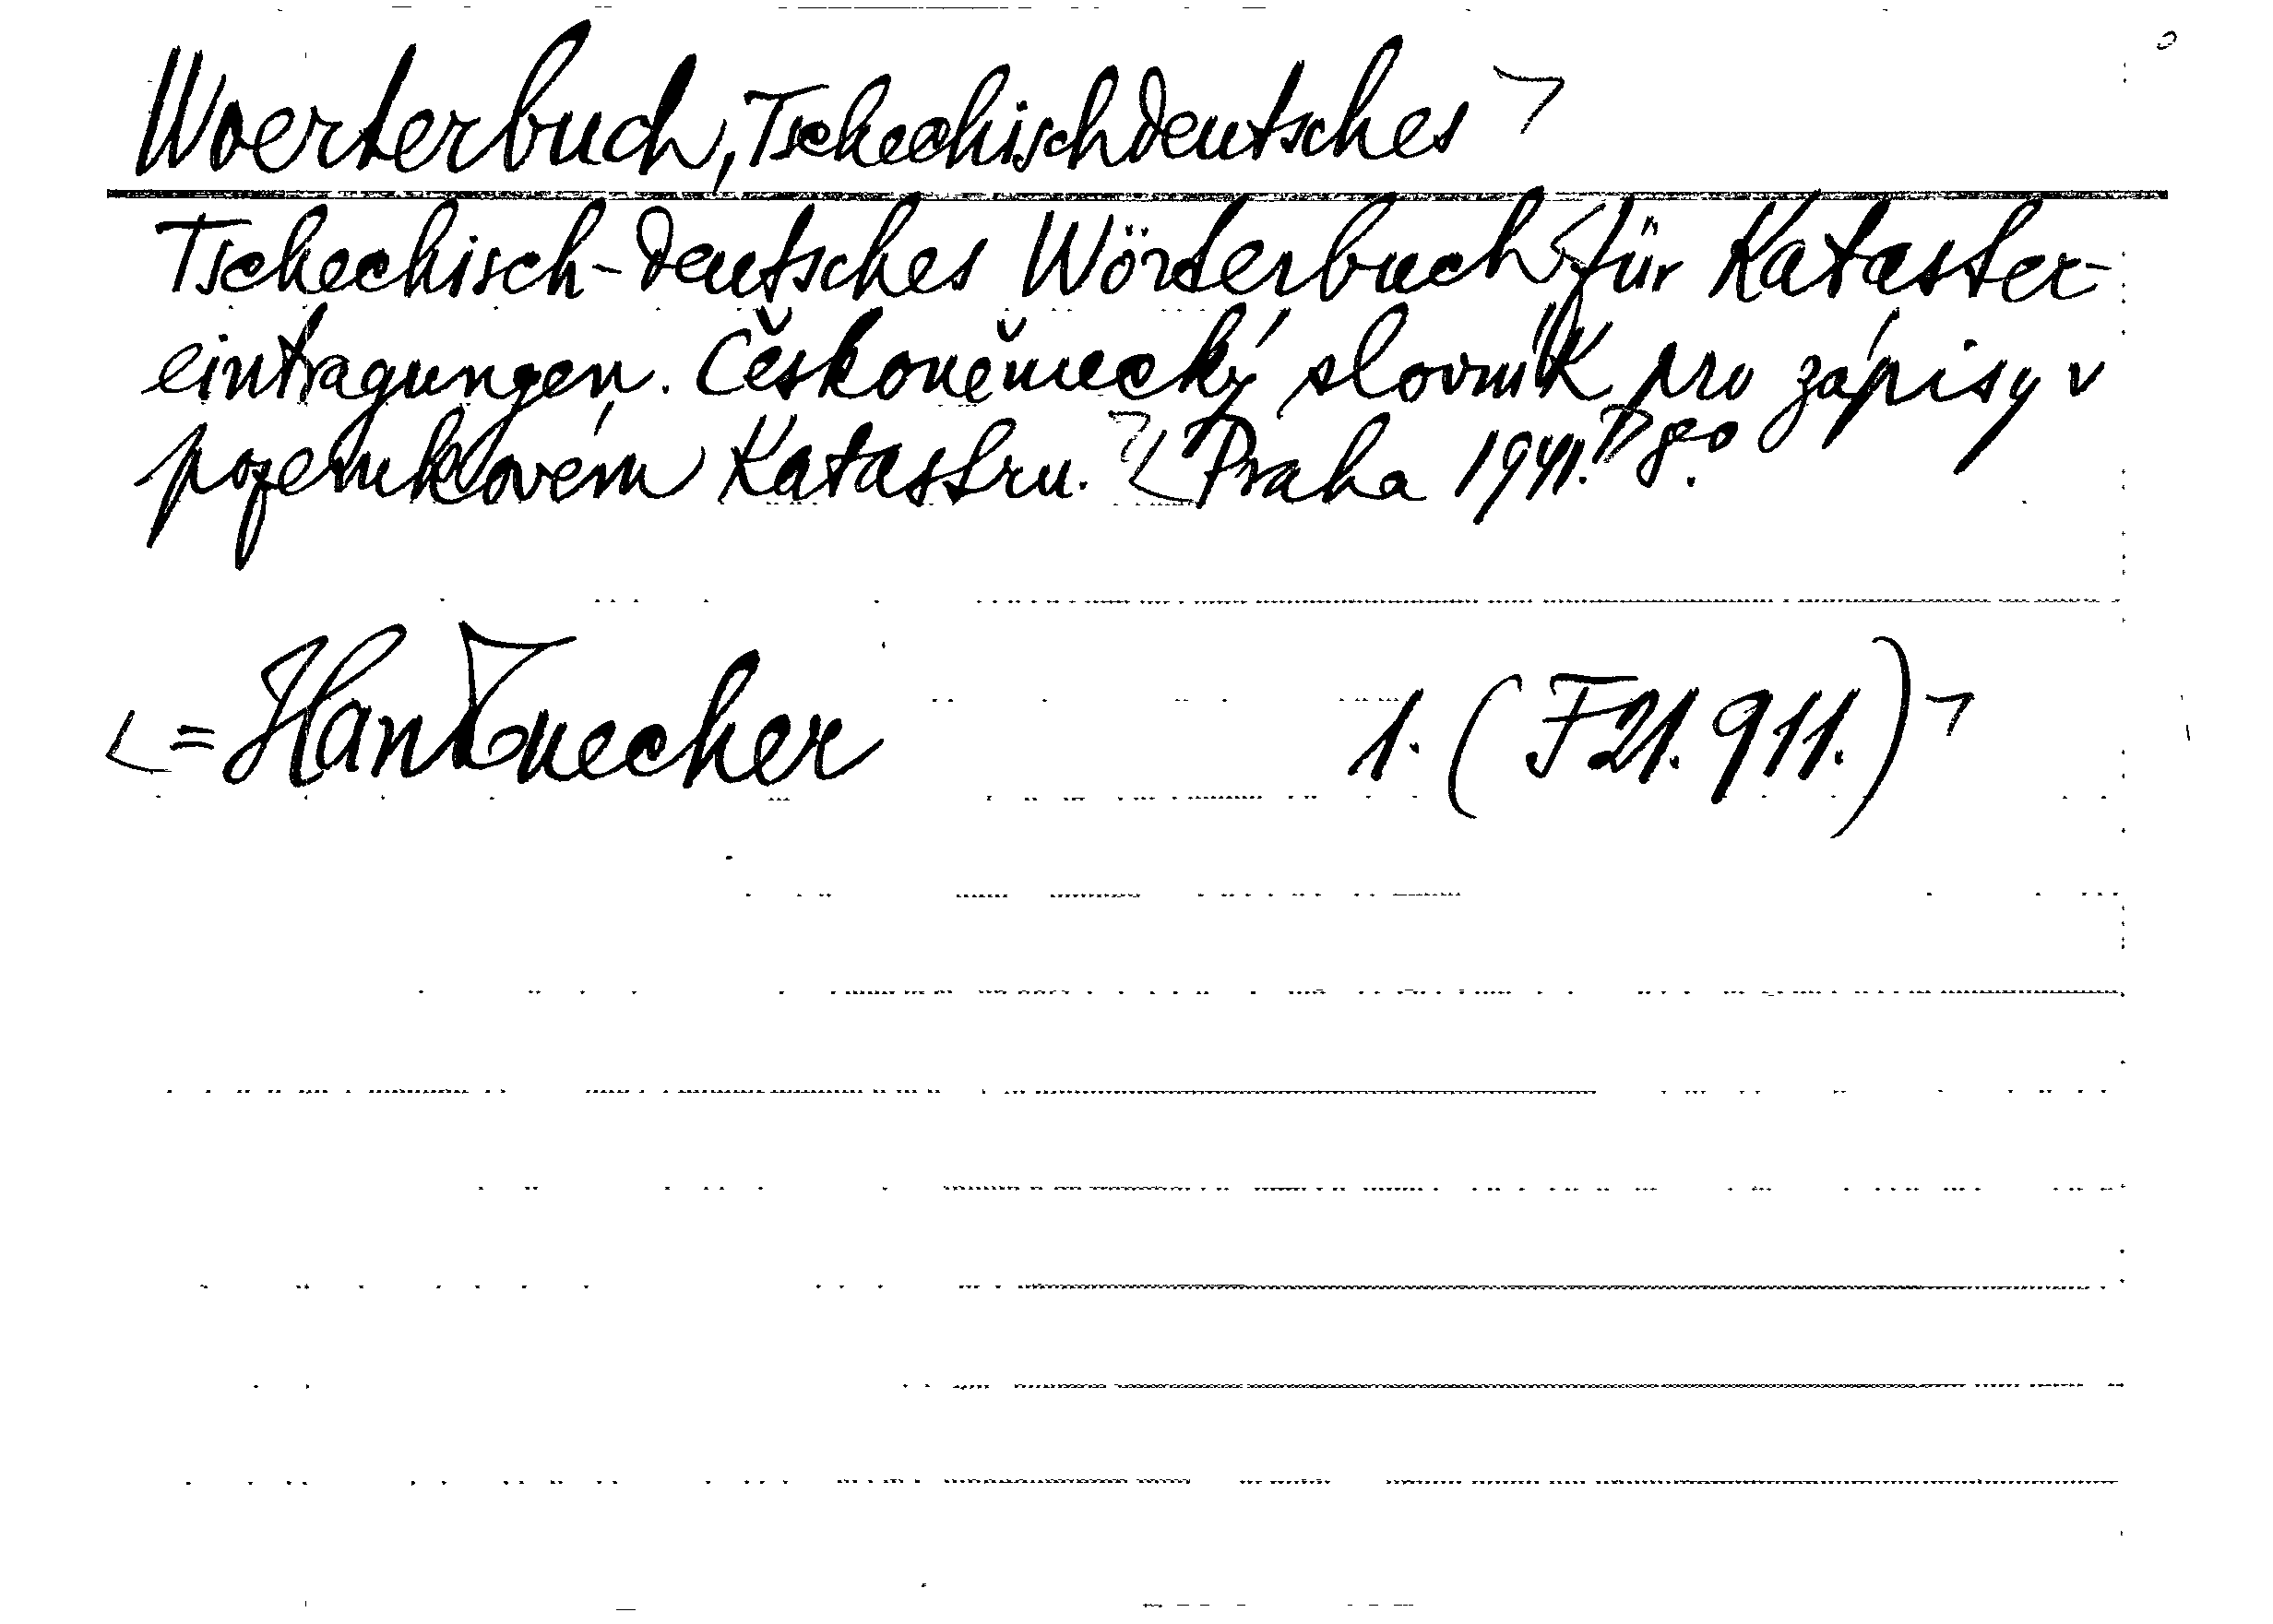 Woerterbuch, Tschechischdeutsches ¬
Tschechisch-deutsches Wörterbuch für Kataster-
eintragungen. Českoněmecký slovník pro zápisy v
pozemkovém Katastru. Praha 1941. 8°.
= Handbuecher 1. (F 21. 911.) ¬